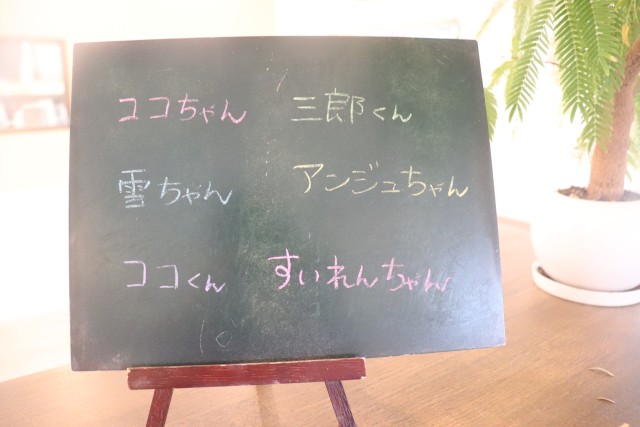 ココちゃん 三郎くん
雪ちゃん アンジュちゃん
ココくん すいれんちゃん